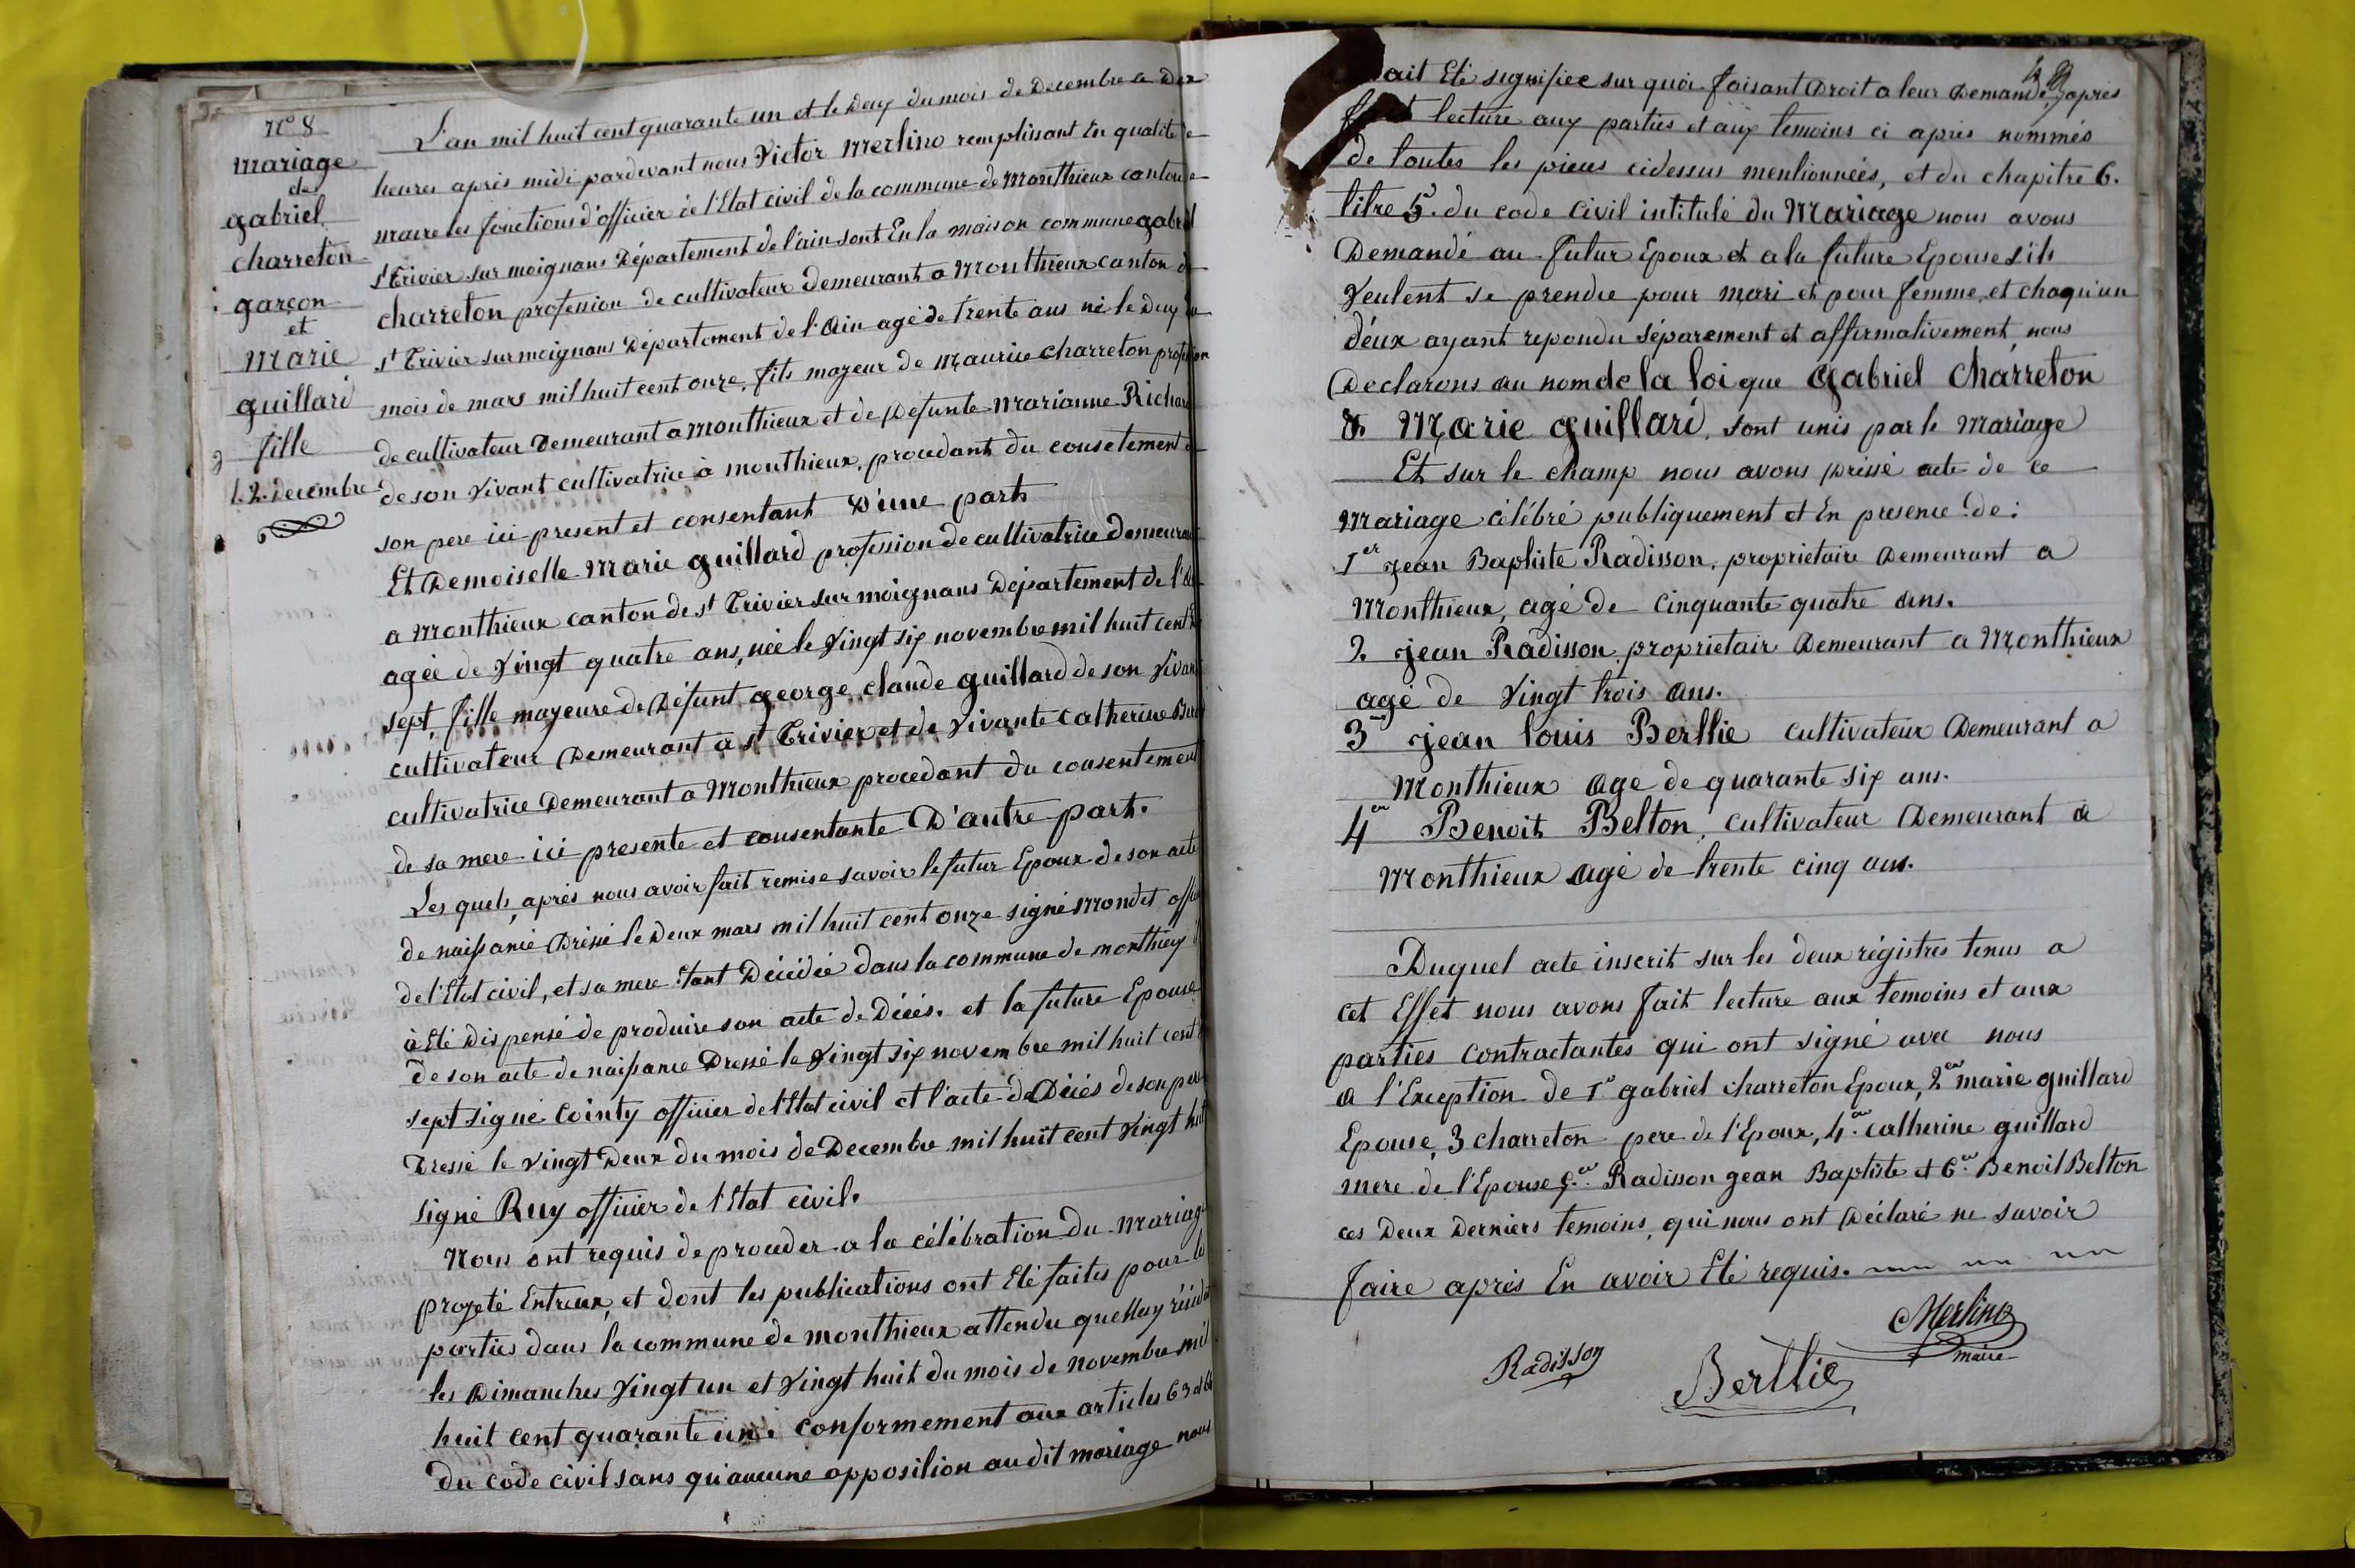 N° 8
mariage
de
gabriel
charreton
garçon
et
marie
guillard
fille
1. 2. decembre
L'an mil huit cent quarante un et le Deux du mois de Decembre a Dix
heures après midi pardevant nous Victor Merlino remplissant En qualité de
maire les fonctions d'officier de l'Etat civil de la commune de Monthieux canton de
st Trivier sur moignans Département de l'ain sont En la maison commune gabriel
charreton profession de cultivateur demeurant a Monthieux canton de
st Trivier sur moignans Département de l'Ain agé de trente ans né le Deux du
mois de mars mil huit cent onze, fils mayeur de Maurice charreton profession
de cultivateur Demeurant a monthieux et de Defunte Marianne Richard
de son vivant cultivatrice à monthieux, procedant du consetement de
son pere ici present et consentant D'une part
Et Demoiselle Marie guillard profession de cultivatrice demeurant
a Monthieux canton de st Trivier sur moignans Département de l'ain
agée de Vingt quatre ans, née le Vingt six novembre mil huit cent dix
sept, fille mayeure de Défunt george claude guillard de son Vivant
cultivateur Demeurant a st Trivier et de Vivante Catherine
cultivatrice Demeurant a Monthieux procedant du consentement
de sa mere ici presente et consentante D'autre part.
Les quels, après nous avoir fait remise savoir le futur Epoux de son acte
de naissance Dressé le Deux mars mil huit cent onze signé Mondet
de l'Etat civil, et sa mere étant Décédée dans la commune de monthieux
à Eté dispensé de produire son acte de Décés. et la future Epouse
de son acte de naissance Dressé le Vingt six novembre mil huit cent
sept signé Cointy officier de l'Etat civil et l'acte de Décés de son pere
Dressé le vingt Deux du mois de Decembre mil huit cent Vingt huit
signé Ruy officier de l'Etat civil.
Nous ont requis de proceder a la célébration du mariage
projeté Entreux, et dont les publications ont Eté faites pour les
parties dans la commune de monthieux attendu quelluy
les Dimanches Vingt un et Vingt huit du mois de novembre mil
huit cent quarante un. conformement aux articles 63 et 64
du code civil sans qu'aucune opposition au dit mariage nous
ait Eté signifiée sur quoi faisant Droit a leur Demande, après
lecture aux parties et aux temoins ci après nommés
de toutes les pieces cidessus mentionnées, et du chapitre 6.
titre 5. du code civil intitulé du Mariage nous avons
Demandé au futur Epoux et a la future Epouse s'ils
Veulent se prendre pour mari et pour femme, et chaqu'un
déux ayant repondu séparement et affirmativement, nous
Declarons au nom de la loi que Gabriel Charreton
& Marie guillard, sont unis par le Mariage
Et sur le champ nous avons dréssé acte de ce
Mariage célébré publiquement et En presence de :
1er jean Baptiste Radisson, proprietaire Demeurant a
Monthieux, agé de Cinquante quatre ans.
2. jean Radisson, proprietair Demeurant a Monthieux
agé de Vingt trois ans.
3 jean louis Berllie cultivateur Demeurant a
Monthieux age de quarante six ans.
4 Benoit Belton, cultivateur Demeurant a
Monthieux agé de trente cinq ans.
Duquel acte inscrit sur les deux régistres tenus a
cet Effet nous avons fait lecture aux temoins et aux
parties contractantes qui ont signé avec nous
a l'Exception de 1° gabriel charreton Epoux, 2 marie guillard
Epouse, 3 charreton pere de l'Epoux, 4. catherine guillard
mere de l'Epouse 5. Radisson jean Baptiste et 6. Benoit Belton
ces Deux Derniers temoins, qui nous ont Déclaré ne savoir
faire après En avoir Eté requis.
Merlino
maire
Radisson
Berllie